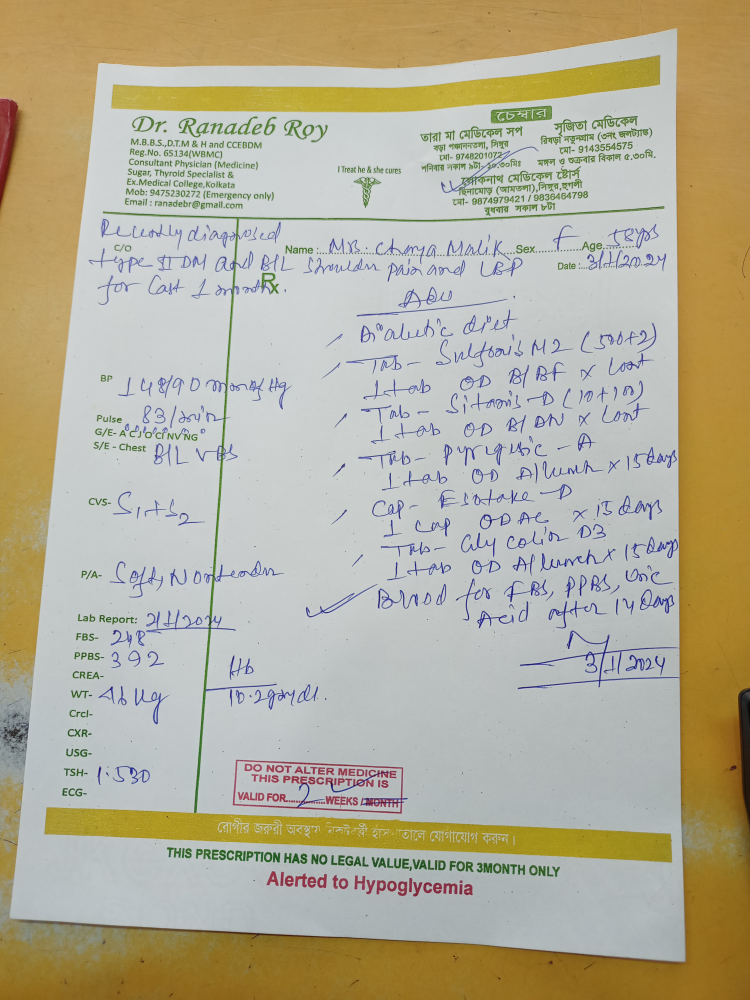 Dr. Ranadeb Roy
M.B.B.S.,D.T.M & H and CCEBDM
Reg.No. 65134(WBMC)
Consultant Physician (Medicine)
Sugar, Thyroid Specialist &
Ex.Medical College,Kolkata
Mob: 9475230272 (Emergency only)
Email : ranadebr@gmail.com
I Treat he & she cures
চেম্বার
তারা মা মেডিকেল সপ
বড়া পঞ্চাননতলা, সিঙ্গুর
মো- 9748201072
শনিবার সকাল ৯টা- ১০.৩০মিঃ
সৃজিতা মেডিকেল
রিষড়া নতুনগ্রাম (৩নং জলট্যাঙ্ক)
মো- 9143554575
মঙ্গল ও শুক্রবার বিকাল ৫.৩০মি.
লোকনাথ মেডিকেল ষ্টোর্স
ছিনামোড় (আমতলা),সিঙ্গুর,হুগলী
মো- 9874979421 / 9836464798
বুধবার সকাল ৮টা
Recently diagnosed
C/O
type II DM and B/L Shoulder pain and LBP
for last 1 month.
Name : Mrs. Malik Sex F Age 58yrs
Date : 3/1/2024
Rx
Adv
Diabetic diet
Tab - M2 (500+2)
1 tab OD B/BF x Cont
Tab - -D (10+100)
1 tab OD B/DN x Cont
Tab - -A
1 tab OD A/Lunch x 15 days
Cap - -D
1 Cap OD AC x 15 days
Tab - D3
1 tab OD A/Lunch x 15 days
Blood for FBS, PPBS, Uric
Acid after 14 Days
3/1/2024
BP 148/90 mm of Hg
Pulse 83/min
G/E- A C J O CI NV NG
S/E - Chest B/L VBS
CVS- S1+S2
P/A- Soft, Nontender
Lab Report: 2/1/2024
FBS- 248
PPBS- 392
CREA-
WT- 46 Kg
Hb
10.2gm/dl.
Crcl-
CXR-
USG-
TSH- 1.530
ECG-
DO NOT ALTER MEDICINE
THIS PRESCRIPTION IS
VALID FOR 2 WEEKS / MONTH
রোগীর জরুরী অবস্থায় নিকটবর্তী হাসপাতালে যোগাযোগ করুন।
THIS PRESCRIPTION HAS NO LEGAL VALUE,VALID FOR 3MONTH ONLY
Alerted to Hypoglycemia